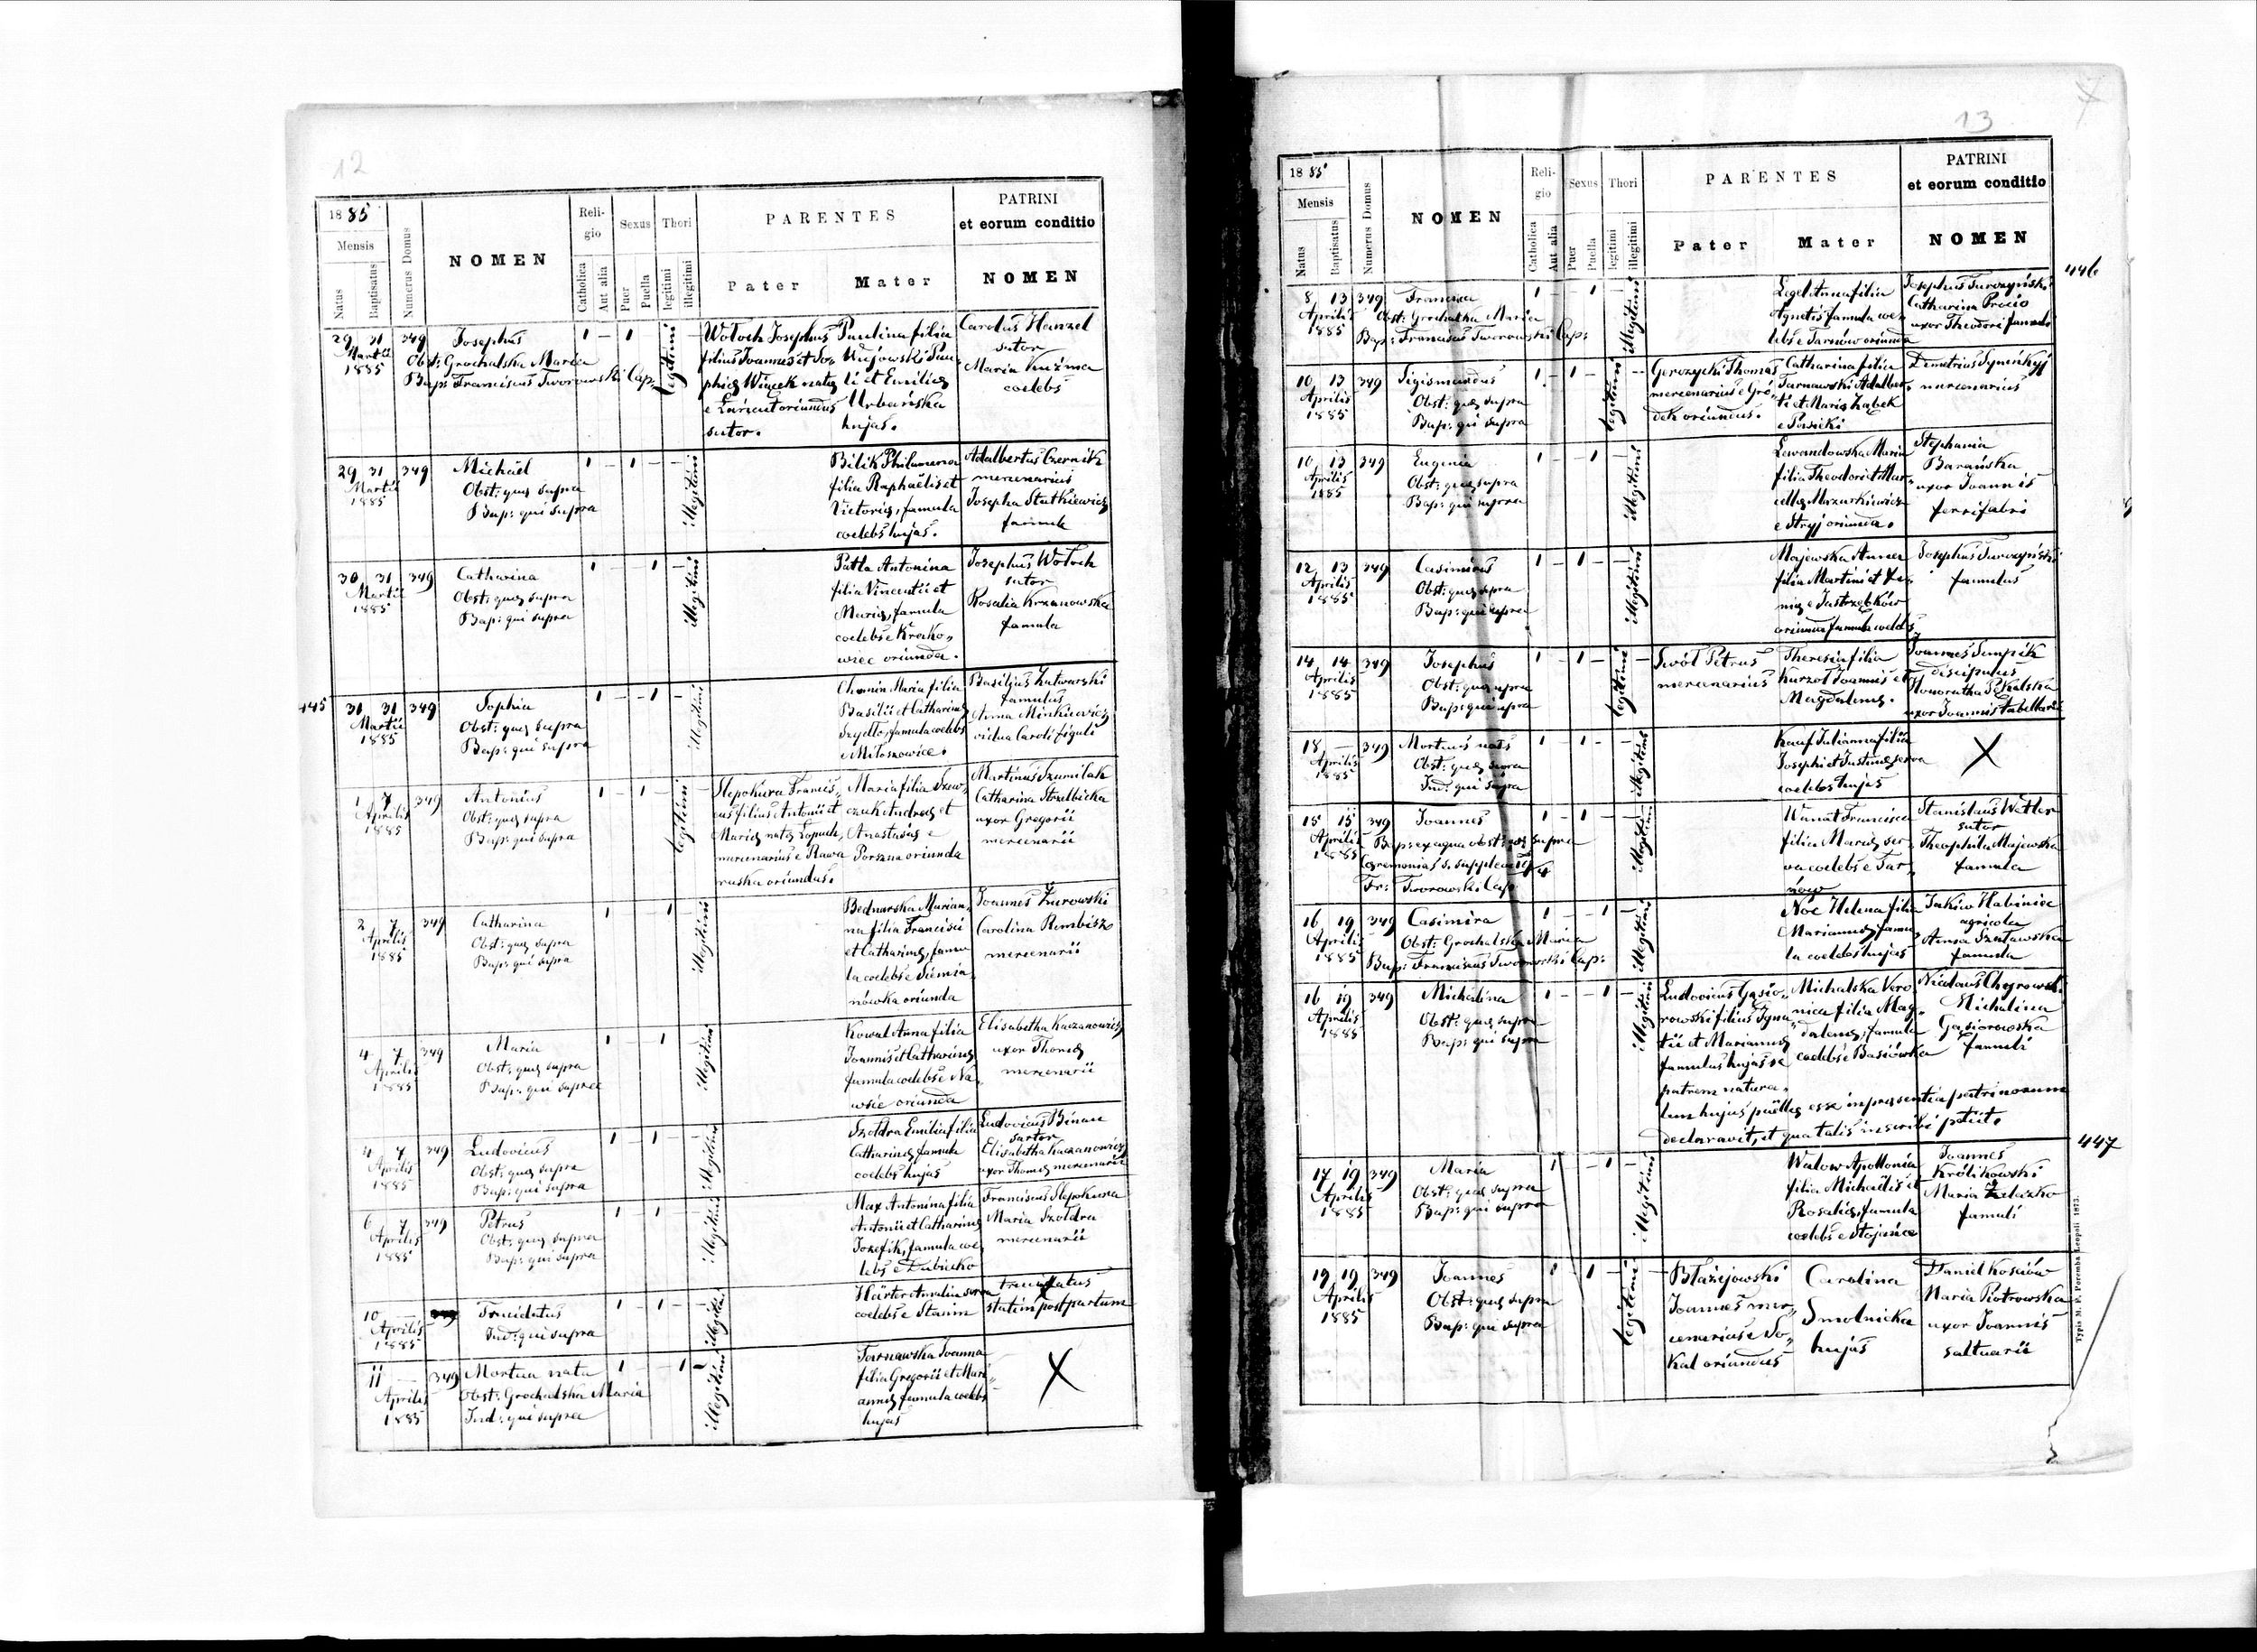 12
18 85
Mensis
Natus
Baptisatus
Numerus Domus
NOMEN
Religio
Catholica
Aut alia
Sexus
Puer
Puella
Thori
legitimi
illegitimi
PARENTES
Pater
Mater
PATRINI
et eorum conditio
NOMEN
29 31 349 Josephus 1 – 1 legitimi
Martii
1885
Obst: Grochalska Maria
Bap: Franciscus Tworowski Cap.
Wołoch Josephus
filius Joannis et So-
phiæ Więcek natæ
e Łańcut oriundus
sutor.
Paulina filia
Pau-
li et Emiliæ
Urbańska
hujas.
Carolus Hanzel
sutor
Maria Kuźma
coelebs
29 31 349 Michaël 1 – 1 – – illegitimi
Martii
1885
Obst: quæ supra
Bap: qui supra
Bilik Philumena
filia Raphaëlis et
Victoriæ, famula
coelebs hujas.
Adalbertus Czernik
mercenarius
Josepha Statkiewicz
famula
30 31 349 Catharina 1 – – 1 illegitimi
Martii
1885
Obst: quæ supra
Bap: qui supra
Patla Antonina
filia Vincentii et
Mariæ, famula
coelebs e Krako-
wiec oriunda.
Josephus Wołoch
sutor
Rosalia Krzanowska
famula
31 31 349 Sophia 1 – – 1 – illegitimi
Martii
1885
Obst: quæ supra
Bap: qui supra
Maria filia
Basilii et Catharinæ
Szydło, famula coelebs
e Miłoszowice.
Basilius
famulus
Anna Minkiewicz
vidua Caroli figuli
1 7 349 Antonius 1 – 1 – legitimi
Aprilis
1885
Obst: quæ supra
Bap: qui supra
Ślepokura Francis-
cus filius Antonii et
Mariæ natæ Łopuch,
mercenarius e Rawa
ruska oriundus.
Maria filia Szew-
czuk Andreæ et
Anastasiæ e
Porszna oriunda
Martinus Szumilak
Catharina Strzelbicka
uxor Gregorii
mercenarii
2 7 349 Catharina 1 1 – illegitimi
Aprilis
1885
Obst: quæ supra
Bap: qui supra
Bednarska Marian-
na filia Francisci
et Catharinæ, famu
la coelebs e Siemia-
nówka oriunda
Joannes Żurowski
Carolina Rembisz
mercenarii
4 7 349 Maria 1 1 illegitimi
Aprilis
1885
Obst: quæ supra
Bap: qui supra
Kowal Anna filia
Joannis et Catharinæ
famula coelebs e Na-
wsie oriunda
Elisabetha Kaczanowicz
uxor Thomæ
mercenarii
4 7 349 Ludovicus 1 – 1 – illegitimi
Aprilis
1885
Obst: quæ supra
Bap: qui supra
Szołdra Emilia filia
Catharinæ famula
coelebs hujas
Ludovicus Binau
sartor
Elisabetha Kaczanowicz
uxor Thomæ mercenarii
6 7 349 Petrus 1 – 1 – illegitimi
Aprilis
1885
Obst: quæ supra
Bap: qui supra
Max Antonina filia
Antonii et Catharinæ
Jozefik, famula coe-
lebs e Dubiecko
Franciscus Ślepokura
Maria Szołdra
mercenarii
10 – Trucidatus 1 – 1 – illegitimi
Aprilis
1885
Ind: qui supra
Härter Amalia serva
coelebs e Stanin
trucidatus
statim post partum
11 – 349 Mortua nata 1 – – 1 illegitimi
Aprilis
1885
Obst: Grochalska Maria
Ind: qui supra
Tarnawska Joanna
filia Gregorii et Mari-
annæ, famula coelebs
hujas
13
18 85
Mensis
Natus
Baptisatus
Numerus Domus
NOMEN
Religio
Catholica
Aut alia
Sexus
Puer
Puella
Thori
legitimi
illegitimi
PARENTES
Pater
Mater
PATRINI
et eorum conditio
NOMEN
446
8 13 349 Francisca 1 – – 1 – illegitimi
Aprilis
1885
Obst: Grochalska Maria
Bap: Franciscus Tworowski Cap:
Legel Anna filia
Agnetis famula coe-
lebs e Tarnów oriunda
Josephus Turczyński
Catharina Procio
uxor Theodori famuli
10 13 349 Sigismundus 1 – 1 – legitimi –
Aprilis
1885
Obst: quæ supra
Bap: qui supra
Gerczycki Thomas
mercenarius e Gró-
dek oriundus.
Catharina filia
Tarnawski Adalber-
ti et Mariæ Ząbek
Demetrius
mercenarius
10 13 349 Eugenia 1 – – 1 – illegitimi
Aprilis
1885
Obst: quæ supra
Bap: qui supra
Lewandowska Maria
filia Theodori et Mar-
cellæ Mazurkiewicz
e Stryj oriunda.
Stephania
Barańska
uxor Joannis
ferrifabri
12 13 349 Casimirus 1 – 1 – illegitimi
Aprilis
1885
Obst: quæ supra
Bap: qui supra
Majewska Anna
filia Martini et Xe-
niæ e Jastrzębków
oriunda famula coelebs
Josephus Turczyński
famulus
14 14 349 Josephus 1 – 1 – legitimi –
Aprilis
1885
Obst: quæ supra
Bap: qui supra
Swół Petrus
mercenarius
Theresia filia
Kurzol Joannis et
Magdalenæ.
Joannes
discipulus
Honoratha Pękalska
uxor Joannis tabellarii
18 – 349 Mortuus natus 1 – 1 – illegitimi
Aprilis
1885
Obst: quæ supra
Ind: qui supra
Kauf Julianna filia
Josephi et Justinæ serva
coelebs hujas
15 15 349 Joannes 1 – 1 – illegitimi
Aprilis
1885
Bap: ex aqua obst: quæ supra
Ceremonias s. supplevit
Fr: Tworowski Cap.
Wanat Francisca
filia Mariæ ser-
va coelebs e Tar-
nów
Stanislaus Wetler
sutor
Theophila Majewska
famula
16 19 349 Casimira 1 – – 1 – illegitimi
Aprilis
1885
Obst: Grochalska Maria
Bap: Franciscus Tworowski Cap:
Noe Helena filia
Mariannæ, famu-
la coelebs hujas
Jaków Habiniec
agricola
Anna Szutawska
famula
16 19 349 Michalina 1 – – 1 – illegitimi
Aprilis
1885
Obst: quæ supra
Bap: qui supra
Ludovicus Gąsio-
rowski filius Igna-
tii et Mariannæ
famulus hujas se
patrem natura-
lem hujus puëllæ esse in præsentia patrinorum
declaravit, et qua talis inscribi petiit.
Michalska Vero
nica filia Mag-
dalenæ, famula
coelebs e Basiówka
Nicolaus Chyrowski
Michalina
Gąsiorowska
famuli
447
17 19 349 Maria 1 – 1 – illegitimi
Aprilis
1885
Obst: quæ supra
Bap: qui supra
Walow Apollonia
filia Michaëlis et
Rosaliæ, famula
coelebs e Stojańce
Joannes
Królikowski
Maria Żelazko
famuli
19 19 349 Joannes 1 1 – legitimi –
Aprilis
1885
Obst: quæ supra
Bap: qui supra
Błażejowski
Joannes mer-
cenarius e So-
kal oriundus
Carolina
Smolnicka
hujas
Daniel Kościów
Maria Piotrowska
uxor Joannis
saltuarii
Typis M. F. Poremba Leopoli 1873.